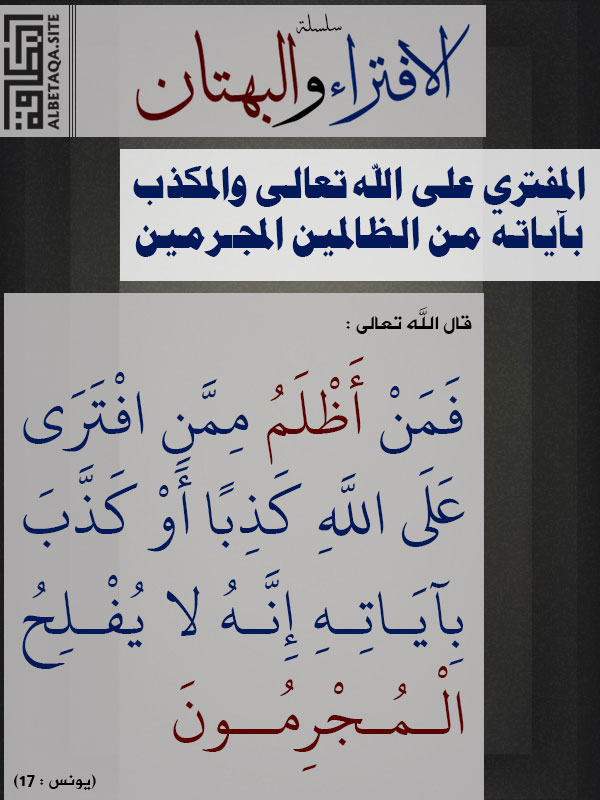 البطاقة
ALBETAQA.SITE
سلسلة
الافتراء والبهتان
المفتري على الله تعالى والمكذب
بآياته من الظالمين المجرمين
قال اللَّه تعالى :
فَمَنْ أَظْلَمُ مِمَّنِ افْتَرَى
عَلَى اللَّهِ كَذِبًا أَوْ كَذَّبَ
بِآيَاتِهِ إِنَّهُ لا يُفْلِحُ
الْمُجْرِمُونَ
(يونس : 17)